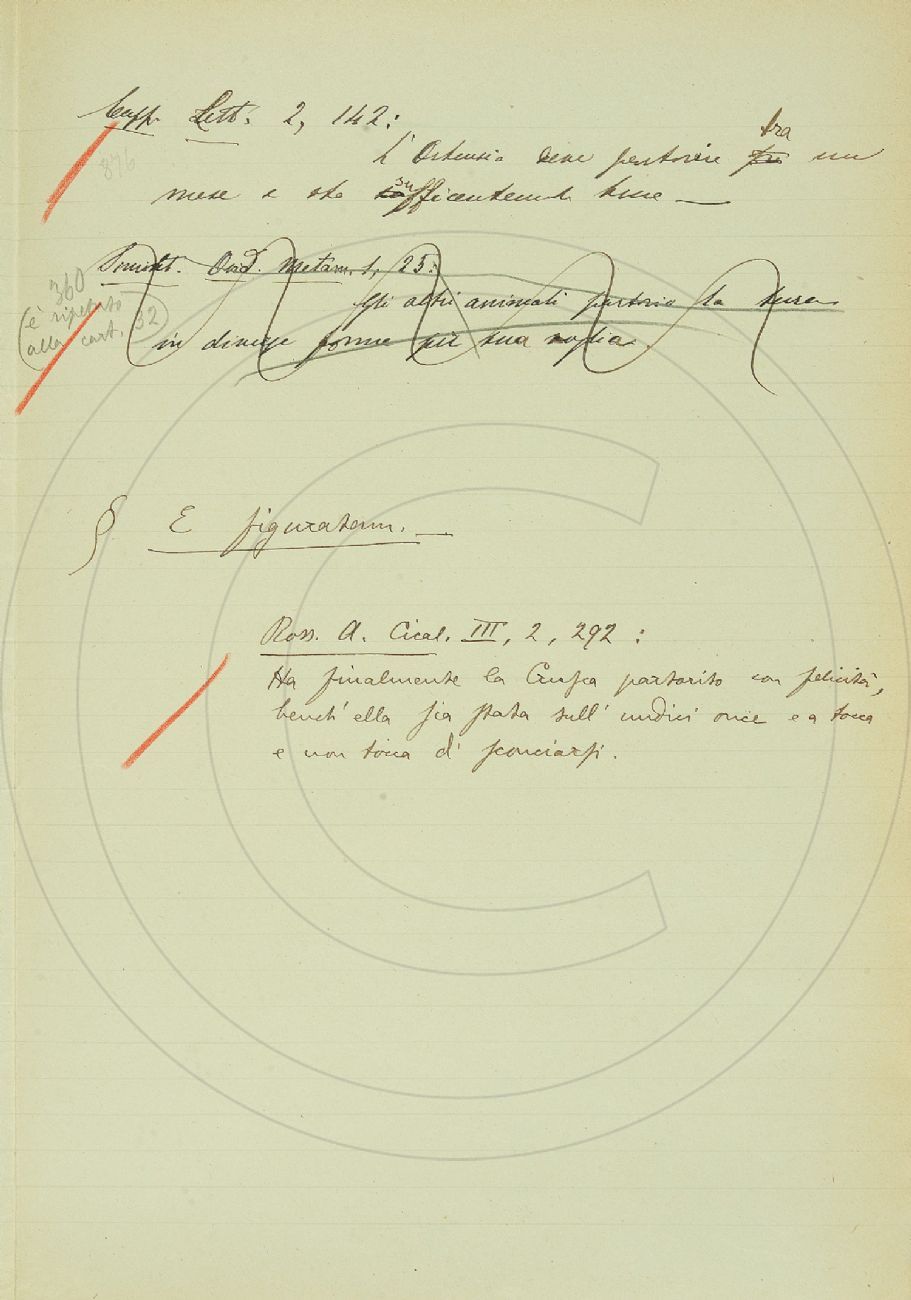 Capp. Lett. 2, 142:
876
L'Ortensia deve partorire tra un
mese e sta sufficentemente bene —
Simint. Ovid. Metam. 1, 25:
360
(è ripetuto
alla cart. 32)
Gli altri animali partorio la terra
in diverse forme per sua voglia.
§ E figuratam. —
Ross. A. Cical. III, 2, 292:
Ha finalmente la Crusca partorito con felicità,
bench' ella sia stata sull' undici once e a tocca
e non tocca di sconciarsi.